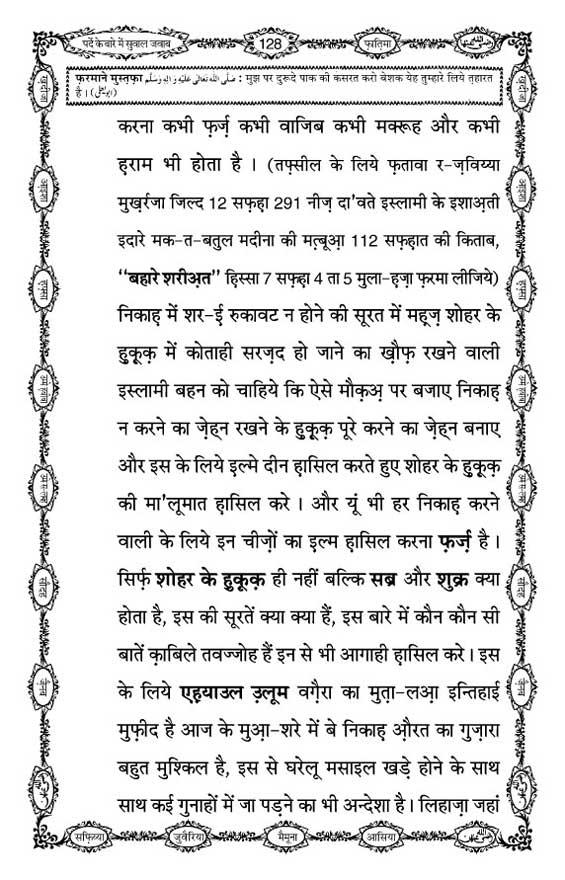 पर्दे के बारे में सुवाल जवाब
128
फ़ातिमा
फ़रमाने मुस्तफ़ा صَلَّى اللهُ تَعَالٰى عَلَيْهِ وَاٰلِهٖ وَسَلَّم : मुझ पर दुरूदे पाक की कसरत करो बेशक येह तुम्हारे लिये त़हारत
है । (ابو یعلٰی)
करना कभी फ़र्ज़ कभी वाजिब कभी मक्रूह और कभी
ह़राम भी होता है । (तफ़्सील के लिये फ़तावा र-ज़विय्या
मुख़र्रजा जिल्द 12 सफ़ह़ा 291 नीज़ दा'वते इस्लामी के इशाअ़ती
इदारे मक-त-बतुल मदीना की मत़्बूआ़ 112 सफ़ह़ात की किताब,
“बहारे शरीअ़त” हिस्सा 7 सफ़ह़ा 4 ता 5 मुला-ह़ज़ा फ़रमा लीजिये)
निकाह़ में शर-ई रुकावट न होने की सूरत में मह़्ज़ शोहर के
ह़ुक़ूक़ में कोताही सरज़द हो जाने का ख़ौफ़ रखने वाली
इस्लामी बहन को चाहिये कि ऐसे मौक़अ़ पर बजाए निकाह़
न करने का ज़ेह्न रखने के ह़ुक़ूक़ पूरे करने का ज़ेह्न बनाए
और इस के लिये इल्मे दीन ह़ासिल करते हुए शोहर के ह़ुक़ूक़
की मा'लूमात ह़ासिल करे । और यूं भी हर निकाह़ करने
वाली के लिये इन चीज़ों का इल्म ह़ासिल करना फ़र्ज़ है ।
सिर्फ़ शोहर के ह़ुक़ूक़ ही नहीं बल्कि सब्र और शुक्र क्या
होता है, इस की सूरतें क्या क्या हैं, इस बारे में कौन कौन सी
बातें क़ाबिले तवज्जोह हैं इन से भी आगाही ह़ासिल करे । इस
के लिये एह़्याउल उ़लूम वग़ैरा का मुत़ा-लआ़ इन्तिहाई
मुफ़ीद है आज के मुआ़-शरे में बे निकाह़ औ़रत का गुज़ारा
बहुत मुश्किल है, इस से घरेलू मसाइल खड़े होने के साथ
साथ कई गुनाहों में जा पड़ने का भी अन्देशा है । लिहाज़ा जहां
सफ़िय्या
जुवैरिया
मैमूना
आसिया